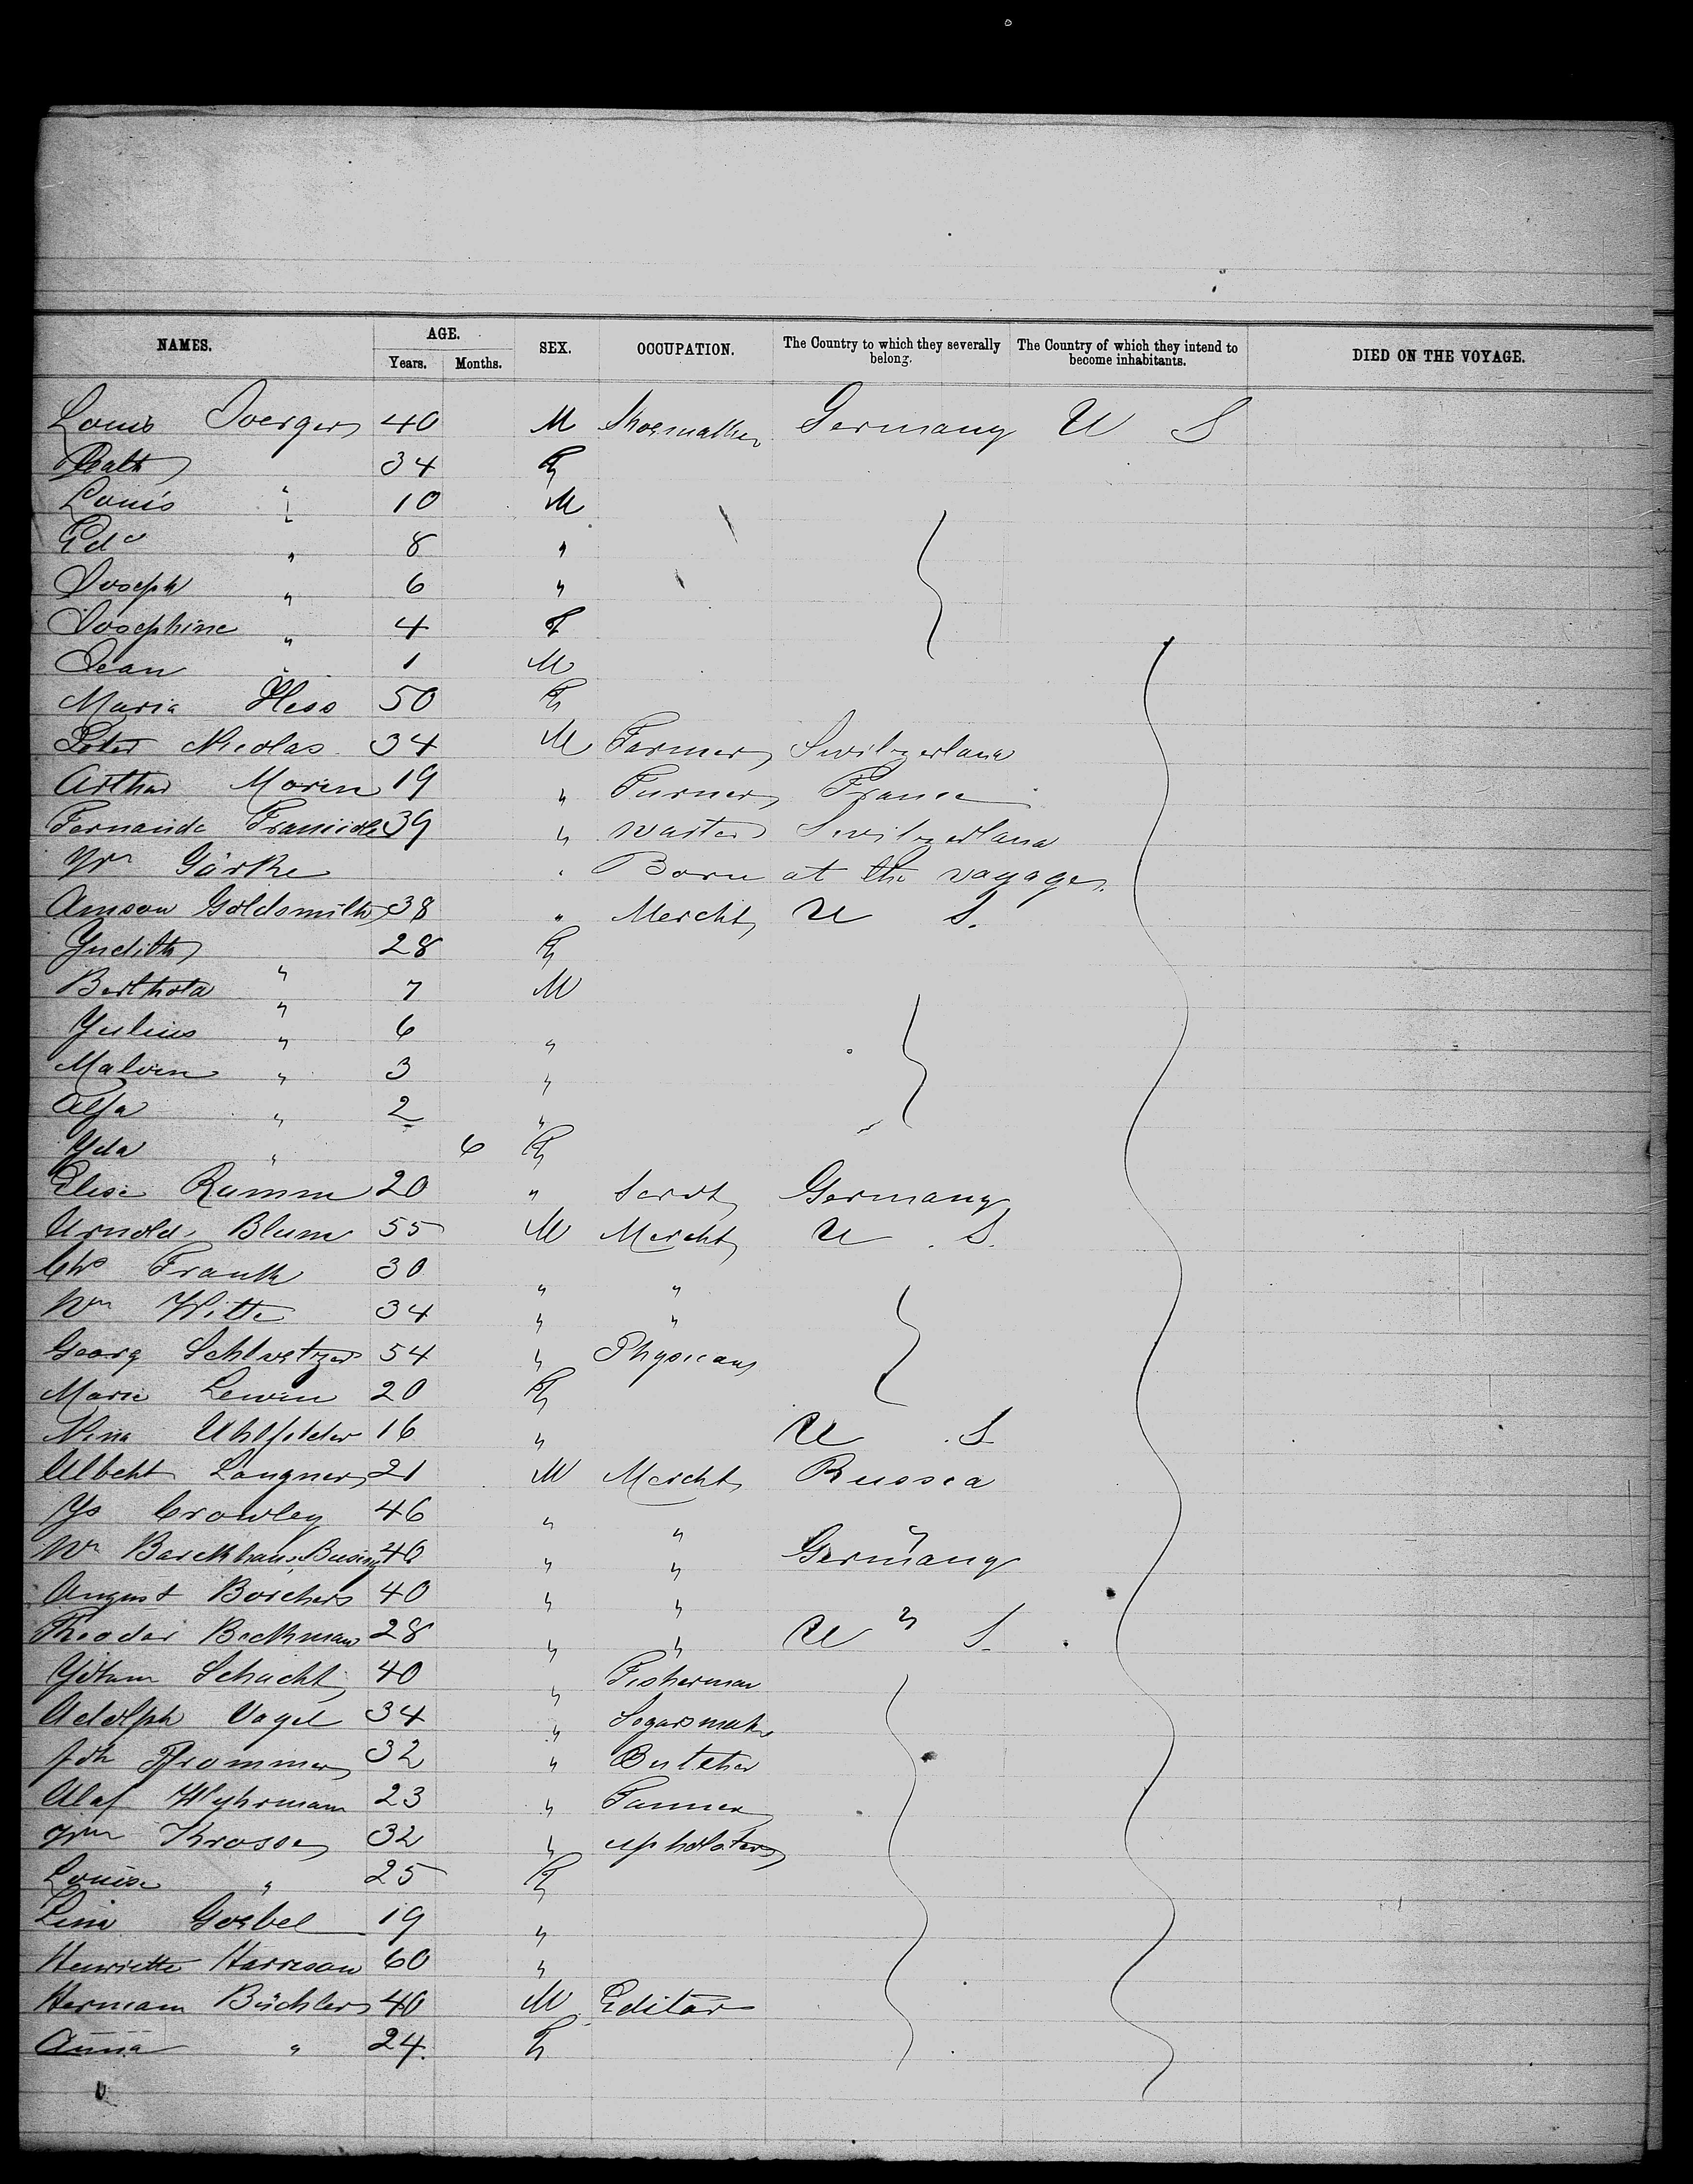 NAMES. AGE. SEX. OCCUPATION. The Country to which they severally belong. The Country of which they intend to become inhabitants. DIED ON THE VOYAGE.
Years. Months.
Louis Joerger 40 M Shoemaker Germany U S
34 F
Louis " 10 M
Edd " 8 "
Joseph " 6 "
Josephine " 4 F
Jean " 1 M
Maria Hess 50 F
Peter Nicolas 34 M Farmer Switzerland
Arthur Morin 19 " Turner France
39 " waiter Switzerland
Wm Görke " Born at the voyage.
Amson Goldsmith 38 " Mercht U S.
Judith " 28 F
Berthold " 7 M
Julius " 6 "
Malvin " 3 "
Alfa " 2 "
Yda " 6 F
Elise Ramm 20 " Servt Germany
Arnold Blum 55 M Mercht U S.
Chs Frank 30 " "
Wm Witte 34 " "
Georg 54 " Physican
Marie Lewin 20 F
Nina Uhlfelder 16 " U S
Albcht Langner 21 M Mercht Russia
Js Crowley 46 " " "
Wm Barckhaus Busing 40 " " Germany
August Borchers 40 " " "
Theodor Beckman 28 " " U S.
Schacht 40 " Fisherman
Adolph Vogel 34 " Segarsmak
Joh Frommer 32 " Butcher
Wehrmann 23 " Tanner
Wm Krosse 32 " upholster
Louise " 25 F
Lina Goebel 19 "
Henriette Harrison 60 "
Hermann Büchler 40 M Editor
Anna " 24. F